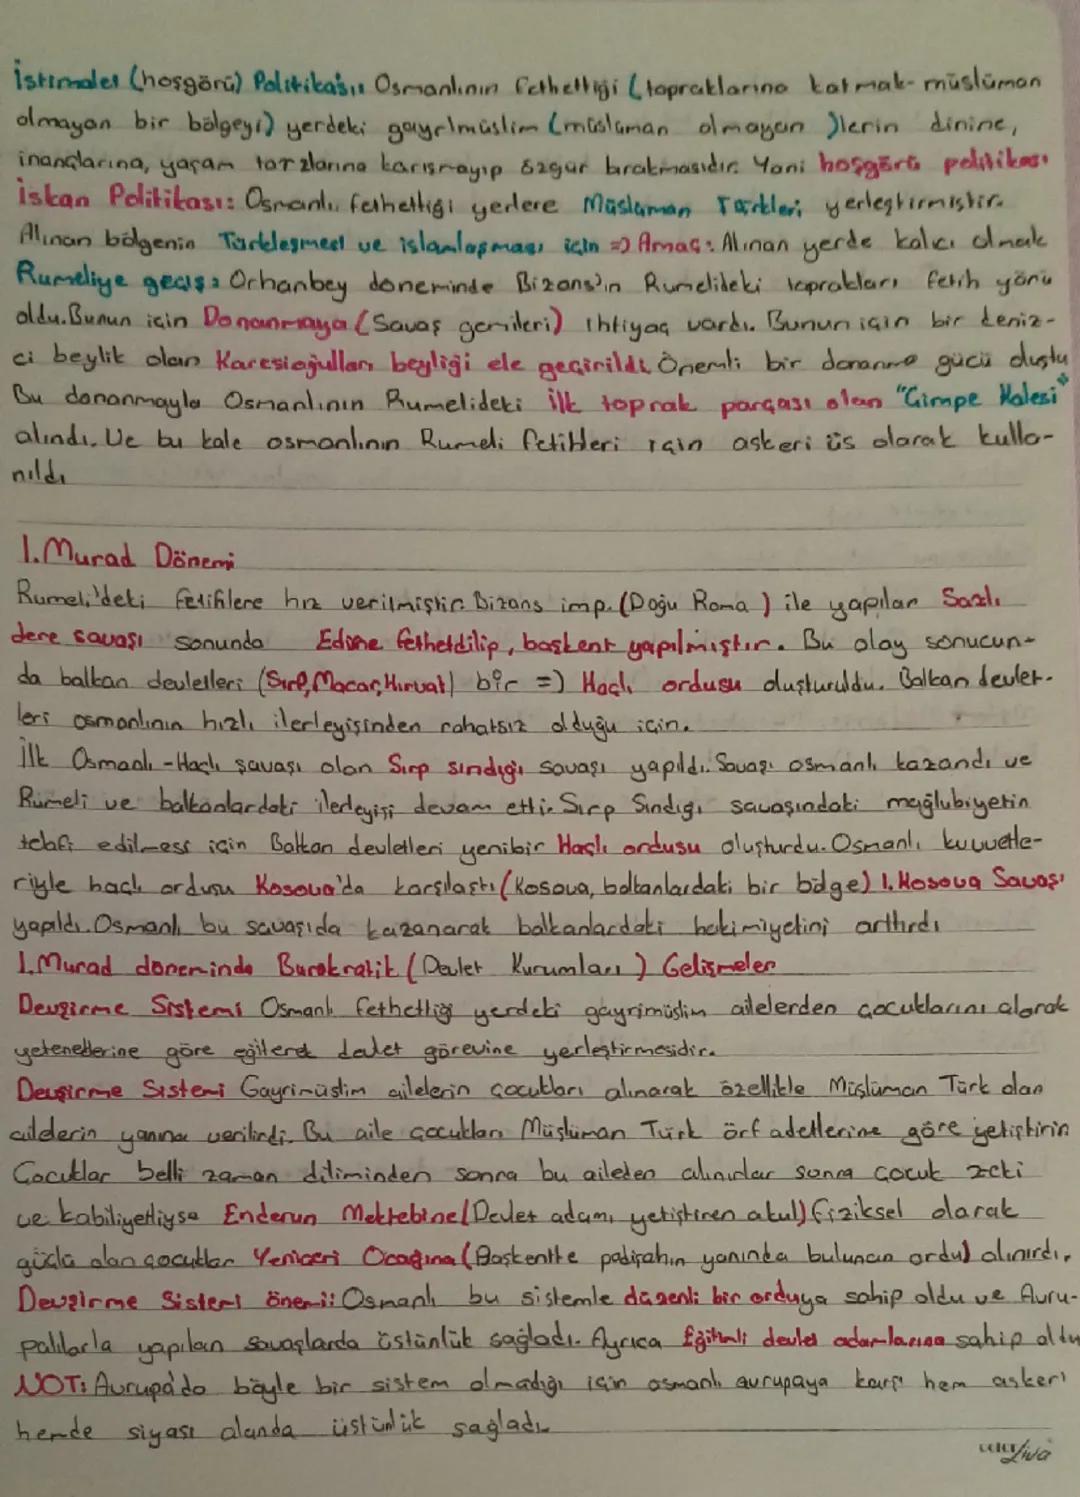 İstimalet (hoşgörü) Politikası: Osmanlının fethettiği (topraklarına katmak- müslüman
olmayan bir bölgeyi) yerdeki gayrimüslim (müslüman olmayan)lerin dinine,
inançlarına, yaşam tarzlarına karışmayıp özgür bırakmasıdır. Yani hoşgörü politikası
İskan Politikası: Osmanlı fethettiği yerlere Müslüman Türkleri yerleştirmiştir.
Alınan bölgenin Türkleşmesi ve islamlaşması için => Amaç: Alınan yerde kalıcı olmak
Rumeliye geçiş: Orhanbey doneminde Bizans'ın Rumelideki toprakları fetih yönü
oldu. Bunun için Donanmaya (Savaş gemileri) ihtiyaç vardı. Bunun için bir deniz-
ci beylik olan Karesioğulları beyliği ele geçirildi. Önemli bir donanma gücü oluştu
Bu donanmayla Osmanlının Rumelideki ilk toprak parçası olan "Gimpe Kalesi"
alındı. Ve bu kale osmanlının Rumeli fetihleri için askeri üs olarak kulla-
nıldı
1. Murad Dönemi
Rumeli'deki fetihlere hız verilmiştir. Bizans imp. (Doğu Roma) ile yapılan Sazlı
dere savaşı sonunda Edirne fethetdilip, başkent yapılmıştır. Bu olay sonucun-
da balkan devletleri (Sırp, Macar, Hırvat) bir => Haçlı ordusu oluşturuldu. Balkan devlet-
leri osmanlının hızlı ilerleyişinden rahatsız olduğu için.
İlk Osmanlı - Haçlı savaşı olan Sırp sındığı savaşı yapıldı. Savaşı osmanlı kazandı ve
Rumeli ve balkanlardaki ilerleyişi devam etti. Sırp Sındığı savaşındaki mağlubiyetin
telafi edilmesi için Balkan devletleri yenibir Haçlı ordusu oluşturdu. Osmanlı kuvvetle-
riyle haçlı ordusu Kosova'da karşılaştı (Kosova, balkanlardaki bir bölge) 1. Kosova Savaşı
yapıldı. Osmanlı bu savaşıda kazanarak balkanlardaki hakimiyetini arttırdı
1. Murad döneminde Burokratik (Devlet Kurumları) Gelişmeler
Devşirme Sistemi Osmanlı fethettiği yerdeki gayrimüslim ailelerden çocuklarını alarak
yeteneklerine göre eğiterek devlet görevine yerleştirmesidir.
Devşirme Sistemi Gayrimüslim ailelerin çocukları alınarak özellikle Müslüman Türk olan
ailelerin yanına verilirdi. Bu aile çocukları Müslüman Türk örf adetlerine göre yetiştirin
Çocuklar belli zaman diliminden sonra bu aileden alınırlar sonra çocuk zeki
ve kabiliyetliyse Enderun Mektebine (Devlet adamı yetiştiren okul) fiziksel olarak
güçlü olan çocuklar Yeniçeri Ocağına (Başkentte padişahın yanında bulunan ordu) alınırdı.
Devşirme Sistemi önemi: Osmanlı bu sistemle düzenli bir orduya sahip oldu ve Avru-
palılarla yapılan savaşlarda üstünlük sağladı. Ayrıca Eğitimli devlet adamlarına sahip oldu
NOT: Avrupa'da böyle bir sistem olmadığı için osmanlı avrupaya karşı hem askeri
hemde siyasi alanda üstünlük sağladı.